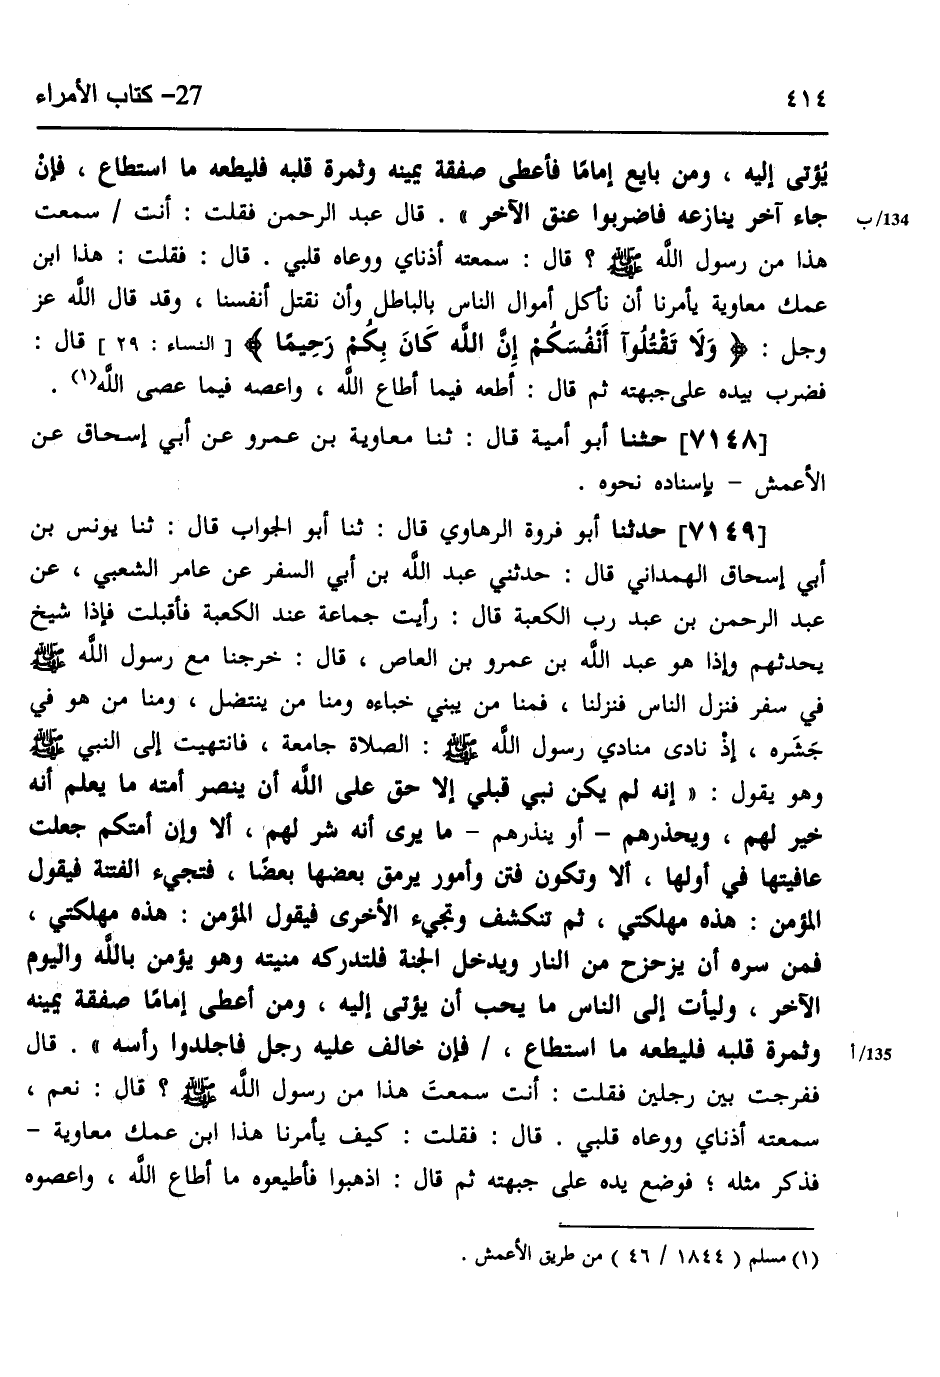 ٤١٤
27- كتاب الأمراء
يُؤتى إليه ، ومن بايع إمامًا فأعطى صفقة يمينه وثمرة قلبه فليطعه ما استطاع ، فإنْ
جاء آخر ينازعه فاضربوا عنق الآخر » . قال عبد الرحمن فقلت : أنت / سمعت
134/ ب
هذا من رسول اللَّه ﷺ ؟ قال : سمعته أذناي ووعاه قلبي . قال : فقلت : هذا ابن
عمك معاوية يأمرنا أن نأكل أموال الناس بالباطل وأن نقتل أنفسنا ، وقد قال اللَّه عز
وجل : ﴿ وَلَا تَقْتُلُوٓا أَنْفُسَكُمْ إِنَّ اللَّه كَانَ بِكُمْ رَحِيمًا ﴾ [ النساء : ٢٩ ] قال :
فضرب بيده على جبهته ثم قال : أطعه فيما أطاع اللَّه ، واعصه فيما عصى اللَّه(١) .
[٧١٤٨] حثنا أبو أمية قال : ثنا معاوية بن عمرو عن أبي إسحاق عن
الأعمش – بإسناده نحوه .
[٧١٤٩] حدثنا أبو فروة الرهاوي قال : ثنا أبو الجواب قال : ثنا يونس بن
أبي إسحاق الهمداني قال : حدثني عبد اللَّه بن أبي السفر عن عامر الشعبي ، عن
عبد الرحمن بن عبد رب الكعبة قال : رأيت جماعة عند الكعبة فأقبلت فإذا شيخ
يحدثهم وإذا هو عبد اللَّه بن عمرو بن العاص ، قال : خرجنا مع رسول اللَّه ﷺ
في سفر فنزل الناس فنزلنا ، فمنا من يبني خباءه ومنا من ينتضل ، ومنا من هو في
جَشَره ، إذْ نادى منادي رسول اللَّه ﷺ : الصلاة جامعة ، فانتهيت إلى النبي ﷺ
وهو يقول : « إنه لم يكن نبي قبلي إلا حق على اللَّه أن ينصر أمته ما يعلم أنه
خير لهم ، ويحذرهم – أو ينذرهم – ما يرى أنه شر لهم ، ألا وإن أمتكم جعلت
عافيتها في أولها ، ألا وتكون فتن وأمور يرمق بعضها بعضًا ، فتجيء الفتنة فيقول
المؤمن : هذه مهلكتي ، ثم تنكشف وتجيء الأخرى فيقول المؤمن : هذه مهلكتي ،
فمن سره أن يزحزح من النار ويدخل الجنة فلتدركه منيته وهو يؤمن باللَّه واليوم
الآخر ، وليأت إلى الناس ما يحب أن يؤتى إليه ، ومن أعطى إمامًا صفقة يمينه
وثمرة قلبه فليطعه ما استطاع ، / فإن خالف عليه رجل فاجلدوا رأسه » . قال
135/ أ
ففرجت بين رجلين فقلت : أنت سمعتَ هذا من رسول اللَّه ﷺ ؟ قال : نعم ،
سمعته أذناي ووعاه قلبي . قال : فقلت : كيف يأمرنا هذا ابن عمك معاوية –
فذكر مثله ؛ فوضع يده على جبهته ثم قال : اذهبوا فأطيعوه ما أطاع اللَّه ، واعصوه
(١) مسلم ( ١٨٤٤ / ٤٦ ) من طريق الأعمش .